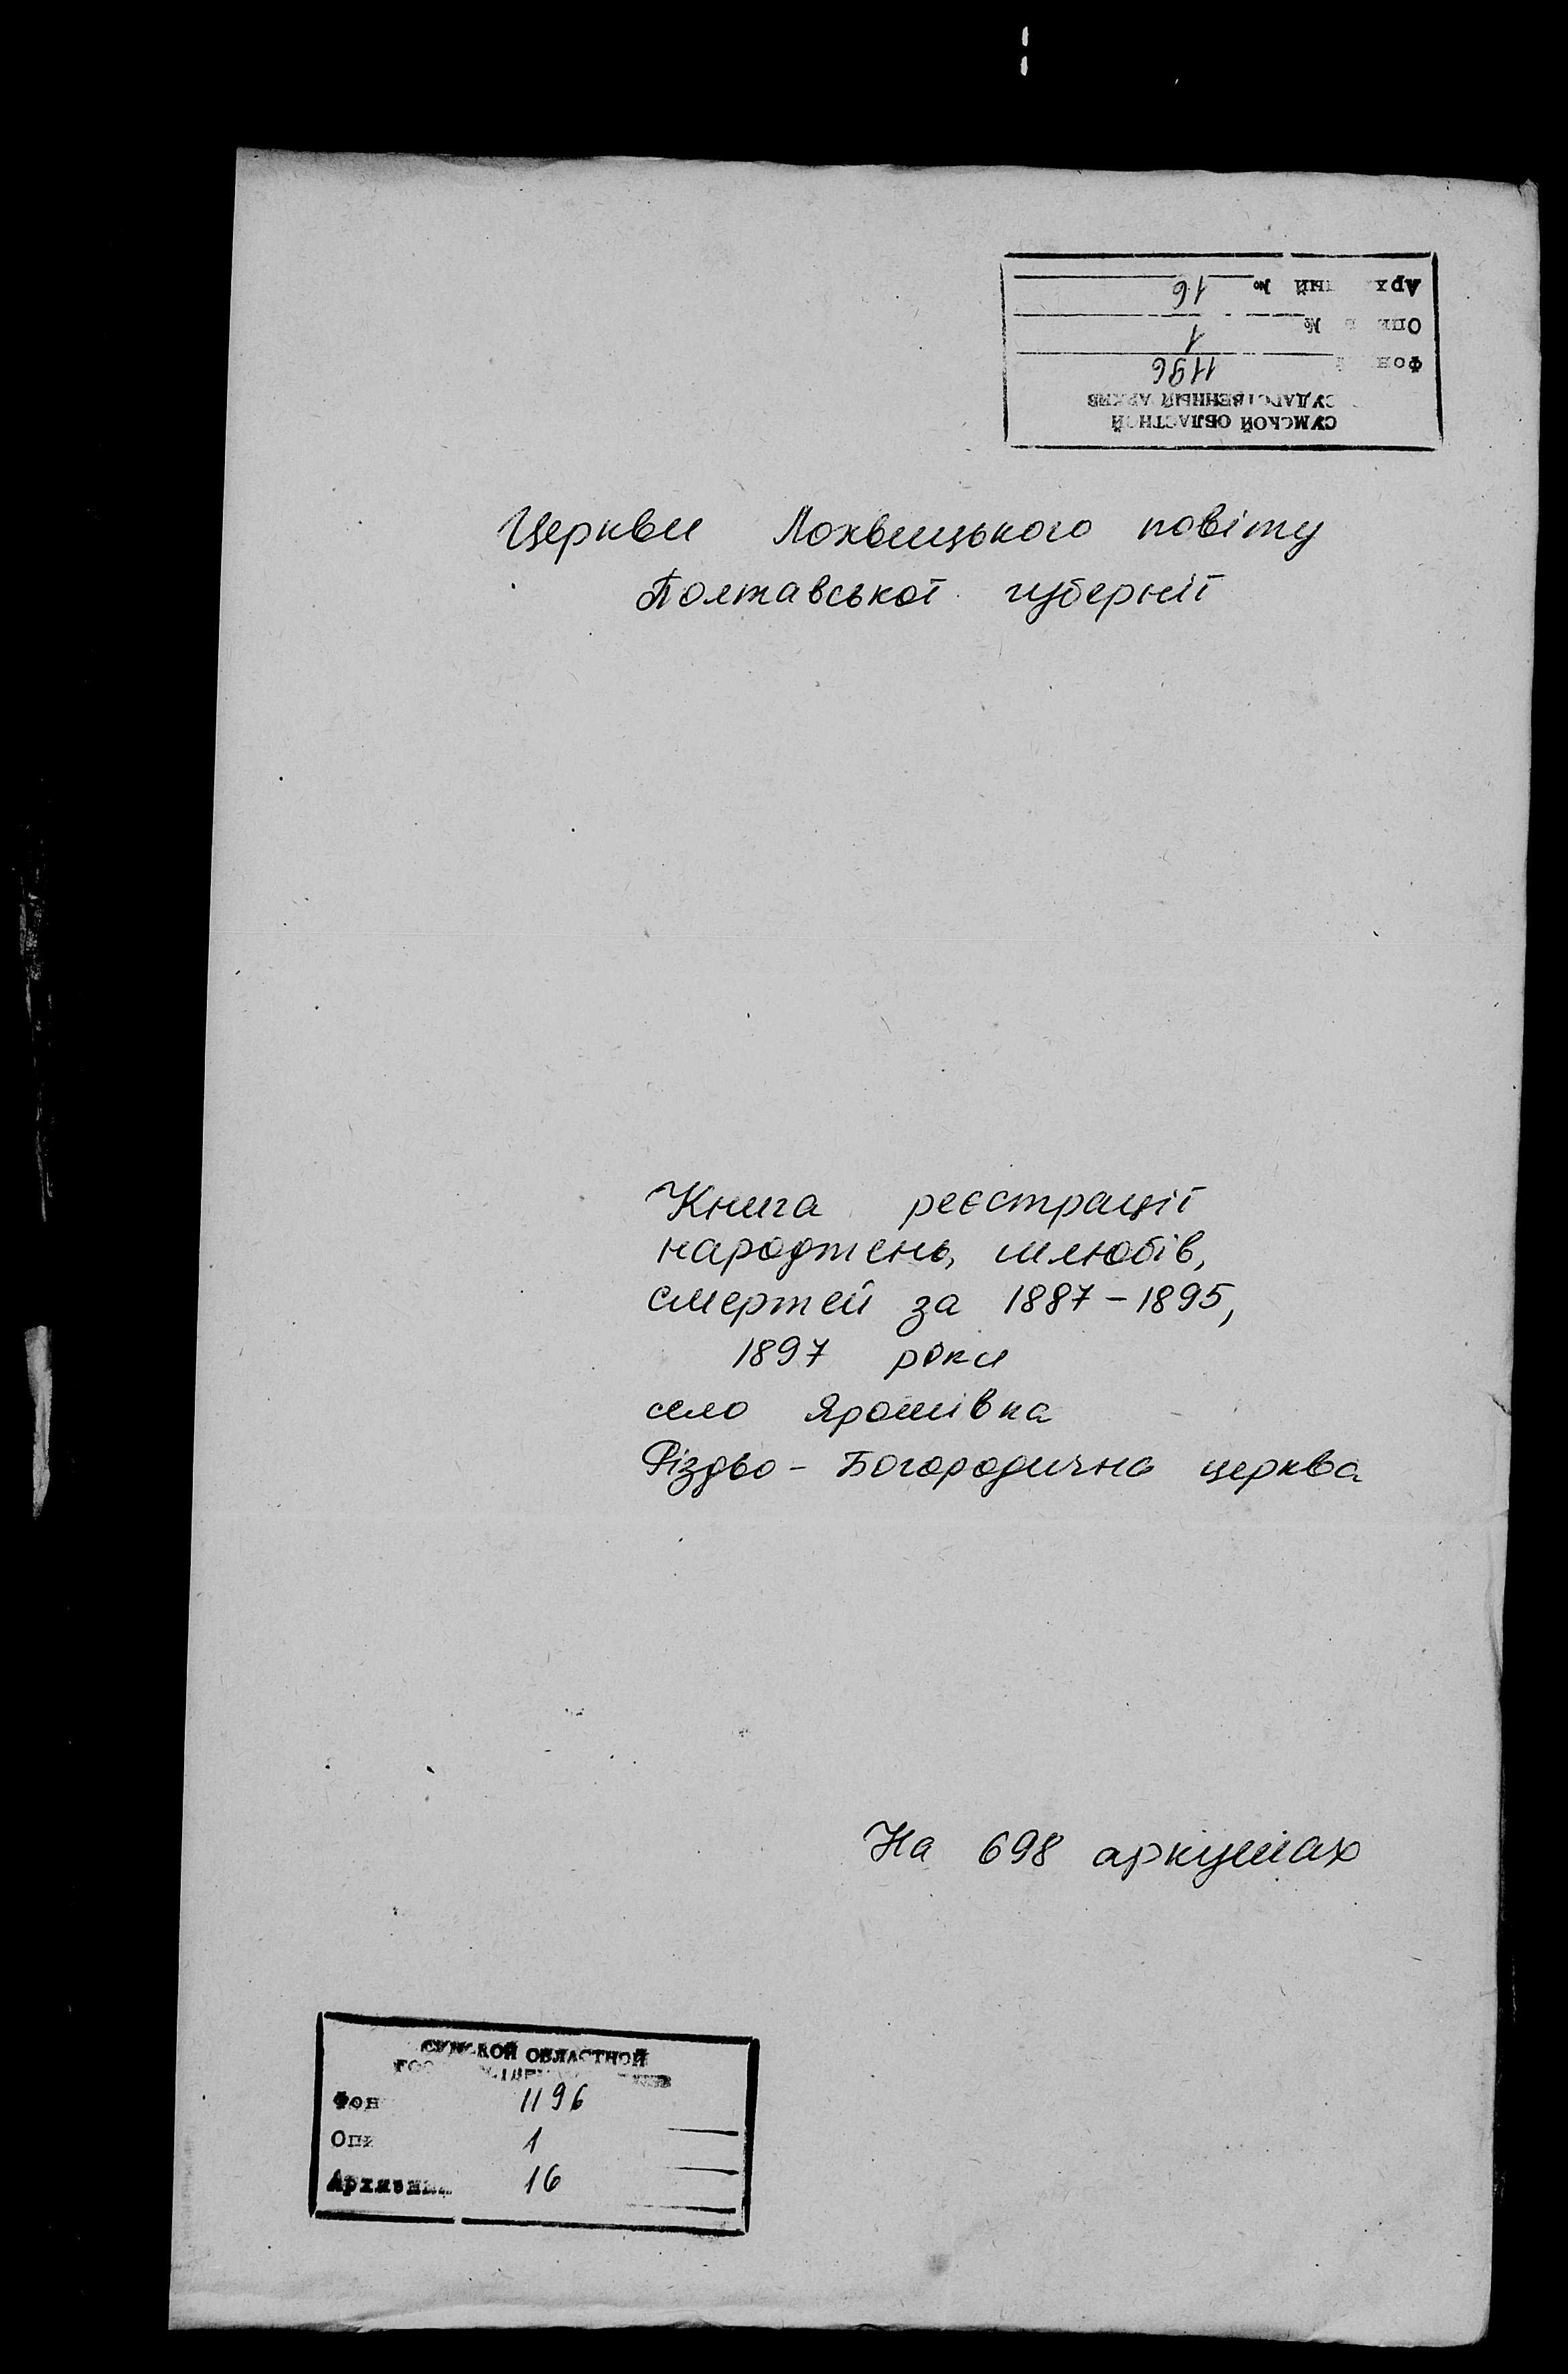 СУМСКОЙ ОБЛАСТНОЙ
СУДАРСТВЕННЫЙ АРХИВ
Фон 1196
Опи № 1
Арх ный № 16
Церкви Лохвицького повіту
Полтавської губернії
Книга реєстрації
народжень, шлюбів,
смертей за 1887-1895,
1897 роки
село Ярошівка
Різдво-Богородична церква
На 698 аркушах
СУМСКОЙ ОБЛАСТНОЙ
Фон 1196
Опи 1
Архивный 16